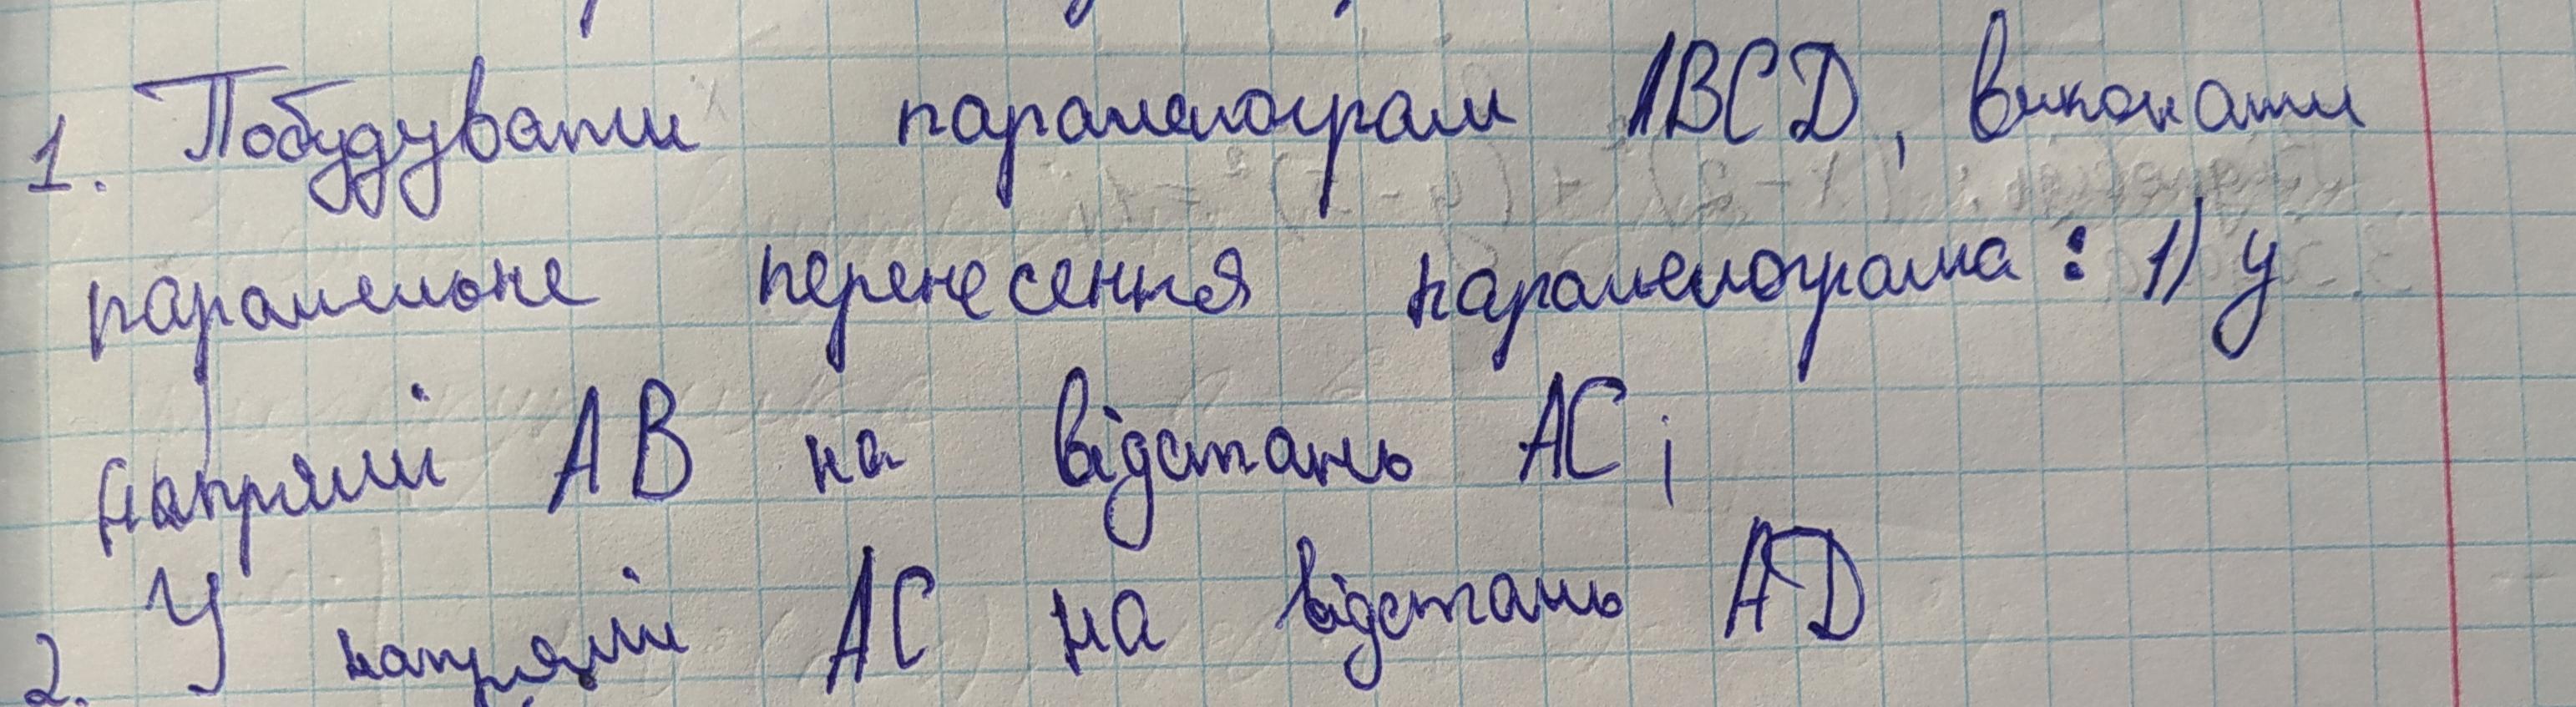 1. Побудувати паралелограм ABCD, виконати
паралельне перенесення паралелограма: 1) у
напрямі AB на відстань AC;
2. У напрямі AC на відстань AD